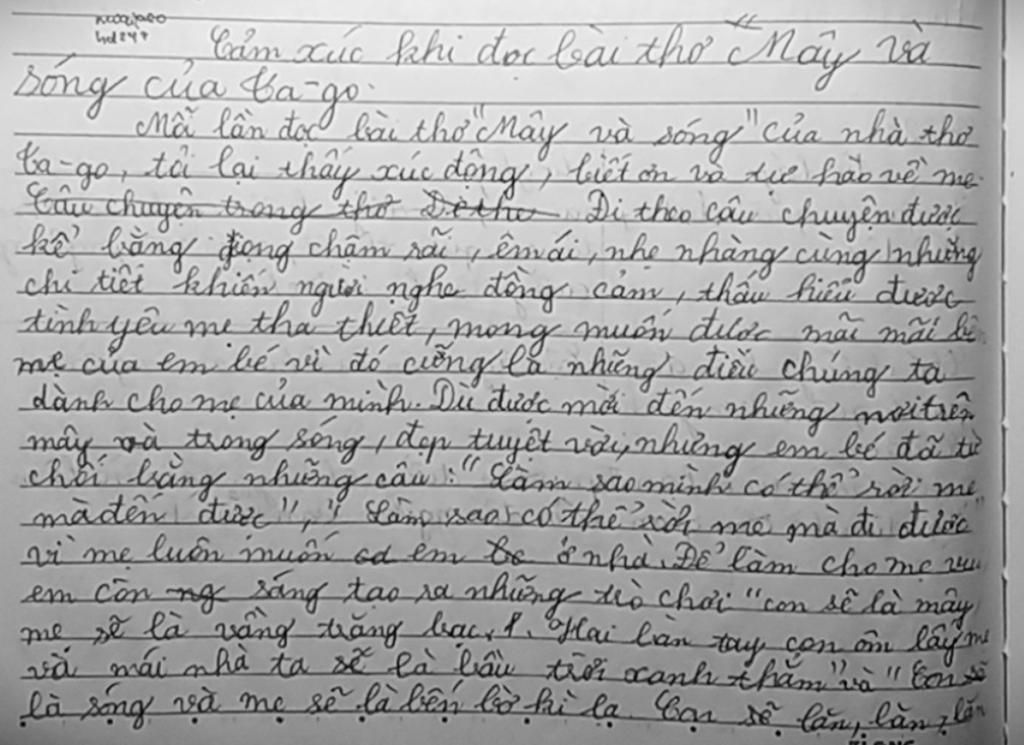 Cảm xúc khi đọc bài thơ "Mây và
sóng của Ta-go.
Mỗi lần đọc bài thơ "Mây và sóng" của nhà thơ
Ta-go, tôi lại thấy xúc động, biết ơn và tự hào về mẹ.
Câu chuyện trong thơ Đi theo câu chuyện được
kể bằng giọng chậm rãi, êm ái, nhẹ nhàng cùng những
chi tiết khiến người nghe đồng cảm, thấu hiểu được
tình yêu mẹ tha thiết, mong muốn được mãi mãi bên
mẹ của em bé vì đó cũng là những điều chúng ta
dành cho mẹ của mình. Dù được mời đến những nơi trên
mây và trong sóng, đẹp tuyệt vời, nhưng em bé đã từ
chối bằng những câu: "Làm sao mình có thể rời mẹ
mà đến được", "Làm sao có thể rời mẹ mà đi được"
vì mẹ luôn muốn em ở nhà. Để làm cho mẹ vui
em còn ng sáng tạo ra những trò chơi "con sẽ là mây,
mẹ sẽ là vầng trăng bạc. Hai bàn tay con ôm lấy mẹ
và mái nhà ta sẽ là bầu trời xanh thẳm" và "Con sẽ
là sóng và mẹ sẽ là bến bờ kì lạ. Con sẽ lăn, lăn, lăn